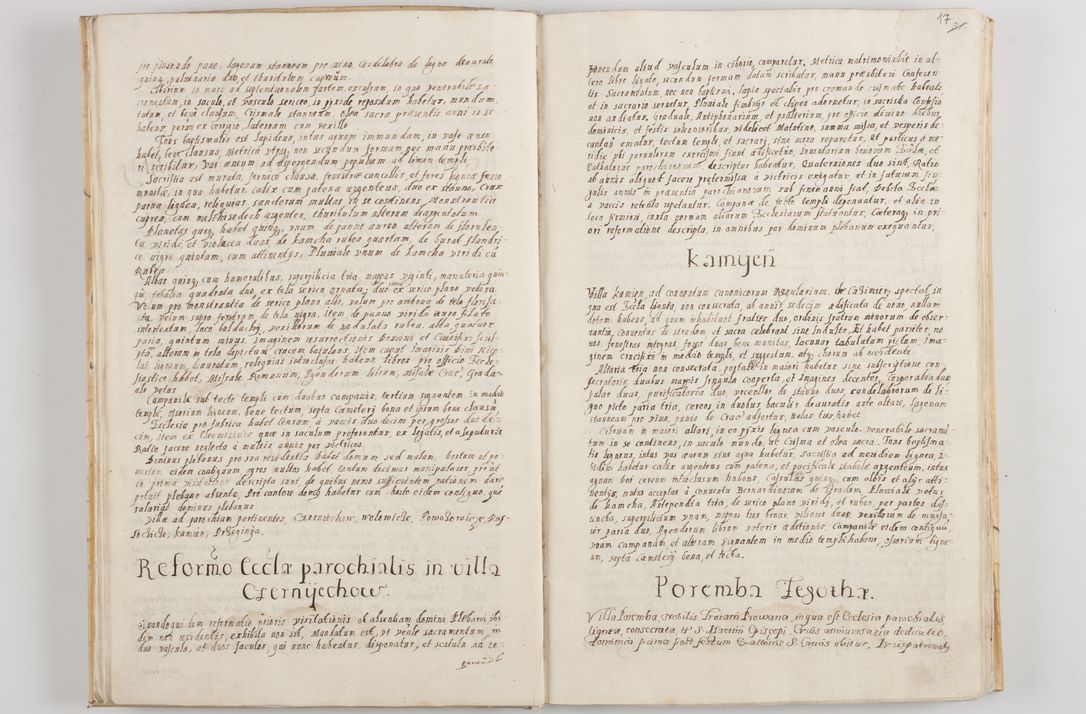 pro plasendo pane, lagenam stanneam pro vino, candelabra de ligno deaurata
quinq, pulvinaria duo, et thuribulum cupreum.
Ciborium in muro ad septemtrionalem partem excisum, in quo venerabile sa-
cramentum, in saculo, et vasculo sericeo, in pixide repositum habetur, mundum,
tutum, et bene clausum, Crismale stanneum, olea sacra praesentis anni in se
habens, parem ex corio, laternam cum vexillo.
Fons baptismalis est lapideus, intus aquam immundam, in vase aeneo
habet, bene clausus, Metrica vtpq, non secundum formam nec manu praesbite-
ri scribitur, vas aeneum ad aspergendum populum ad limen templi.
Sacristia est murata, fornice clausa, fenestrae cancellos, et fores habens ferro
munitas, in qua habetur, calix cum patena argenteus, duo ex stanno, Crux
parva lignea, reliquias sanctorum multas in se continens, Monstrantia
cuprea, cum melchisedech argenteo, thuribulum alterum deargentatum.
Planetas quoq, habet quinq, vnam de panno aureo alteram de florulen-
ta viridi, et violacea duas, de kamcha rubea quartam, de burat flandri-
co nigro quintam, cum attinentijs, Pluviale vnum de kamcha viridi cu
rubea.
Albas quinq, cum humeralibus, superpilicia tria, mappas viginti, manuteria quin-
que, tobalia quadrata duo, ex tela serico ornata, duo ex serico plano vetera
Velum pro monstrantia de serico plano albo, velum pro ambona de tela florisa-
ta, velum supra feretrum de tela nigra, item de panno viridi auro filato
intertextam, loco baldachij, vexillorum de vndulata rubea, alba quatuor
paria, quintum minus. Imaginem resurrectionis Domini et Crucifixi scul-
ptas, alteram in tela depictam crucem baiulans, item caput Imaginis divi Nico-
lai ligneum, lauratum, reliquias intraclusas habens, libros pro officio Eccle-
siastico habet, Missale Romanum, Agendorum librum, Missale Crac, Gradu-
ale vetus.
Campanile sub tecto templi cum duabus campanis, tertium signantem in medio
templi, Ossorium ligneum, bene tectum, septa Caemiterij bona et ipsum bene clausu.
Ecclesia pro fabrica habet Censum, a vaccis duo decim per grossos duo de-
cim, item ex eleemosynae quae in saculum proferuntur, ex legatis, et a sepulturis
Ratio facere neglecta a multis annis per vitricos.
Dominus plebanus pro sua residentia habet domum sed malam, hortum et po-
marium eidem contiguum, agros nullos habet, tantum decimas manipulares prout
in prima visitatione descripta sunt, de quibus nemo sufficientem rationem dare
potuit plebano absente. Pro cantore domus habetur cum horto eidem contiguo, que
salariat dominus plebanus.
Villae ad parochiam pertinentes, Czerniechow, Wolowicze, Powolowicze, Rus-
soczicze, kamien, Przeginga.
Reformo Ecclae parochialis in villa
Czernijechow.
Quandoquidem reformatio prioris visitationis ob absentiam domini Plebani ibi-
dem non residentis, exhibita non sit, Mandatum est, vt venle sacramentum, in
duo vascula, et duos saculos, qui nunc habentur, disponatur, et scatula ad re-
ponend
17
ponendum aliud vasculum in ciborio, comparetur, Metrica matrimonialis in al-
tero libro ligato, secundum formam datam scribatur, manu praesbiteri Conferen-
tis Sacramentum, nec non baptismi, lapis specialis pro cremando cusmate habeatr,
et in sacrario servetur, Pluviale fimbrijs et clipeo adornetur, in sacristia Confessio
non audiatur, Graduale, Antiphonarium, et psalterium, pro officio divino diebus
dominicis, et festis solennioribus, videlicet Matutino, summa missa, et vesperis de-
cantari ematur, tectum templi et sacrarij, sine mora reparetur, et porticus a me-
ridie vbi parvulorum exorcismi fiunt aedificetur, Inventarium bonorum Ecclae, et
Cathalogus parochianorum descriptus habeatur, Quaterniones duo sint, Ratio
ab annis aliquot facere praetermissa a vitricis exigatur, et in futurum sin-
gulis annis in praesentia parochianorum, sub finem anni fiat, Debita Ecclae
a vaccis retenta repetantur, Campanae de tecto templi deponantur, et alio in
loco firmiori, iuxta normam aliarum Ecclesiarum statuantur, Caeteraq in pri-
ori reformatione descripta, in omnibus per dominum plebanum exequantur.
Kamijeń
Villa kamien, ad conventum canonicorum Regularium, de Casimiria spectat, in
qua est Eccla lignea, non consecrata, ab annis sedecim aedificata de novo, nullam
dotem habens, ad quam inhabitant fratres duo, ordinis fratrum minorum de obser-
vantia, Conventus de Stradom et sacra celebrant sine Indulto, Et habet parietes, no-
vos fenestras integras, fores duas bene munitas, lacunar tabulatum pictum, Ima-
ginem crucifixi in medio templi, et suggestum, atq, chorum ab occidente.
Altaria tria non consecrata, portatile in maiori habetur sine subscriptione con-
secrationis, duabus mappis singula cooperta, et Imagines decentes, Corporalia duo
palas duas, purificatoria duo, vrceollos de stanno duos, candelabrorum de li-
gno picto paria tria, cereos in duobus, baculis deauratis ante altare, lagenam
stanneam pro vino, panis de Crac adfertur, Nolas tres habet
Ciborium in maiori altari, in eo pixis lignea cum vasculo venerabile sacramen-
tum in se continens, in saculo mundo, vt Crisma et olea sacra. Fons baptisma-
lis ligneus, intus vas aeneum sine aqua habetur, Sacristia ad meridiem lignea, i-
bidem habetur calix argenteus cum patena, et pacificale stabile argenteum, intus
agnum Dei cereum intraclusum habens, Casulas quinq, cum albis et alijs atti-
nentijs, mutuo acceptas a conventu Bernardinorum de Stradom, Pluviale vetus
de kamcha, Antependia tria, de serico plano viridi, et rubeo per partes dis-
tincta, superpilicium vnum, mappas tres bonas viliores duas, vexillorum de mucha-
ier paria duo, Agendorum librum veteris aeditionis, Campanile eidem contiguu
vnam campanam et alteram signantem in medio templi habens, ossorium ligne-
um, septa Caemiterij bona, et tecta.
Poremba Zegothae.
Villa Poremba, Nobilis Traiani Provana, in qua est Ecclesia parochialis
lignea, consecrata, tt S. Martini Episcopi, Cuius anniversaria dedicatio,
dominica prima post festum Exaltationis S. Crucis obitur, Iurispatronatus